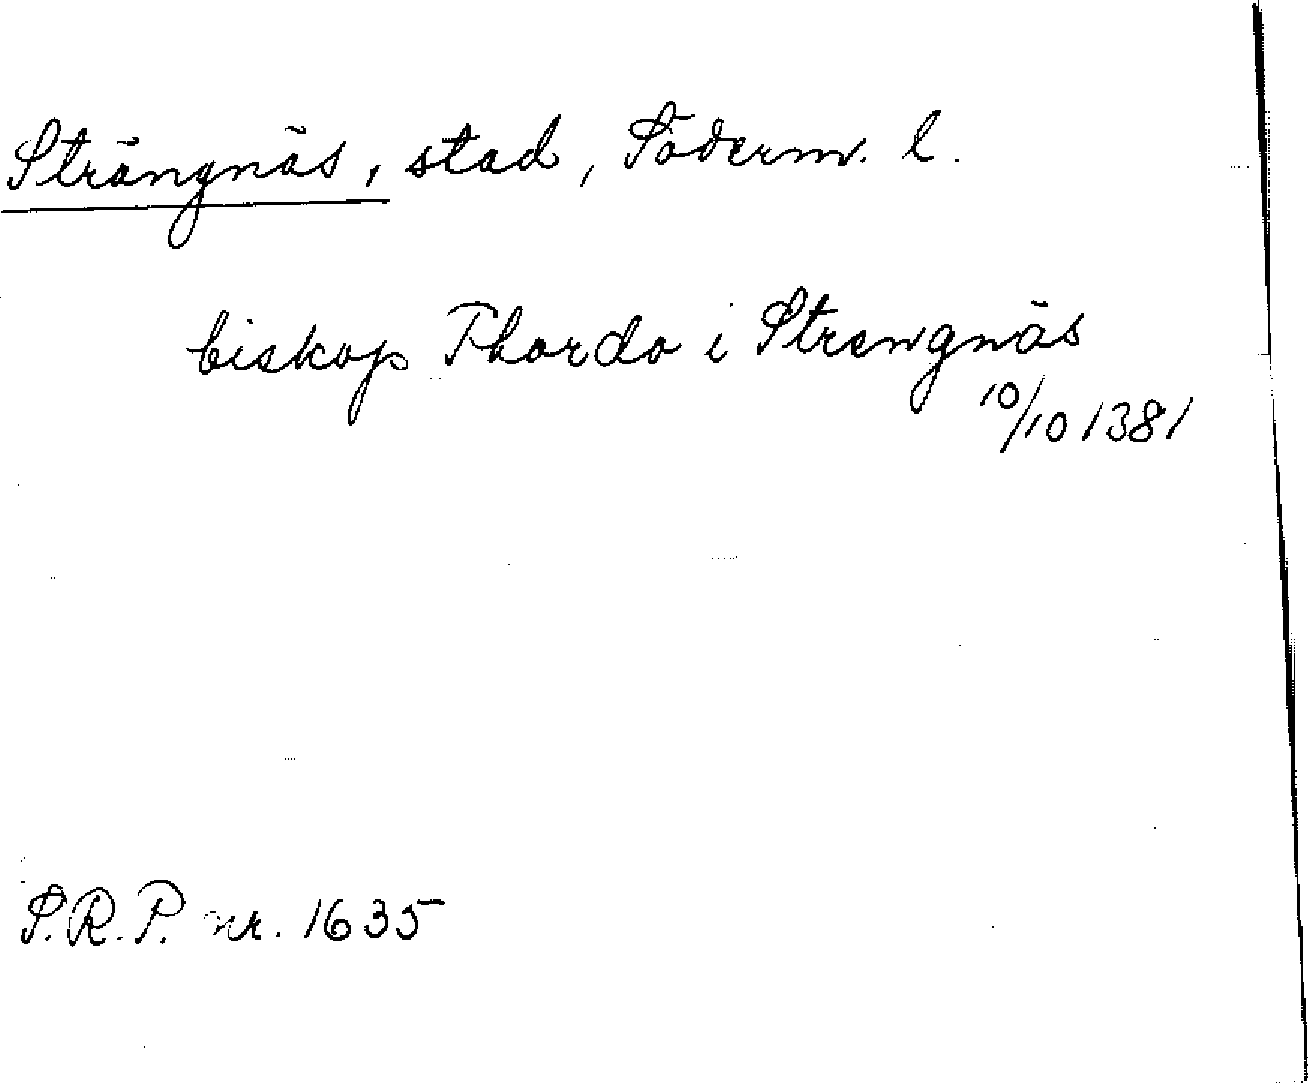 Strängnäs, stad, Söderm. l.
biskop Thordo i Strengnäs
10/10 1381
S.R.P. nr. 1635